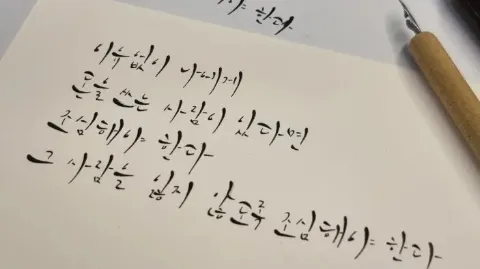 한다
이유없이 나에게
돈을 쓰는 사람이 있다면
조심해야 한다
그 사람을 잃지 않도록 조심해야 한다